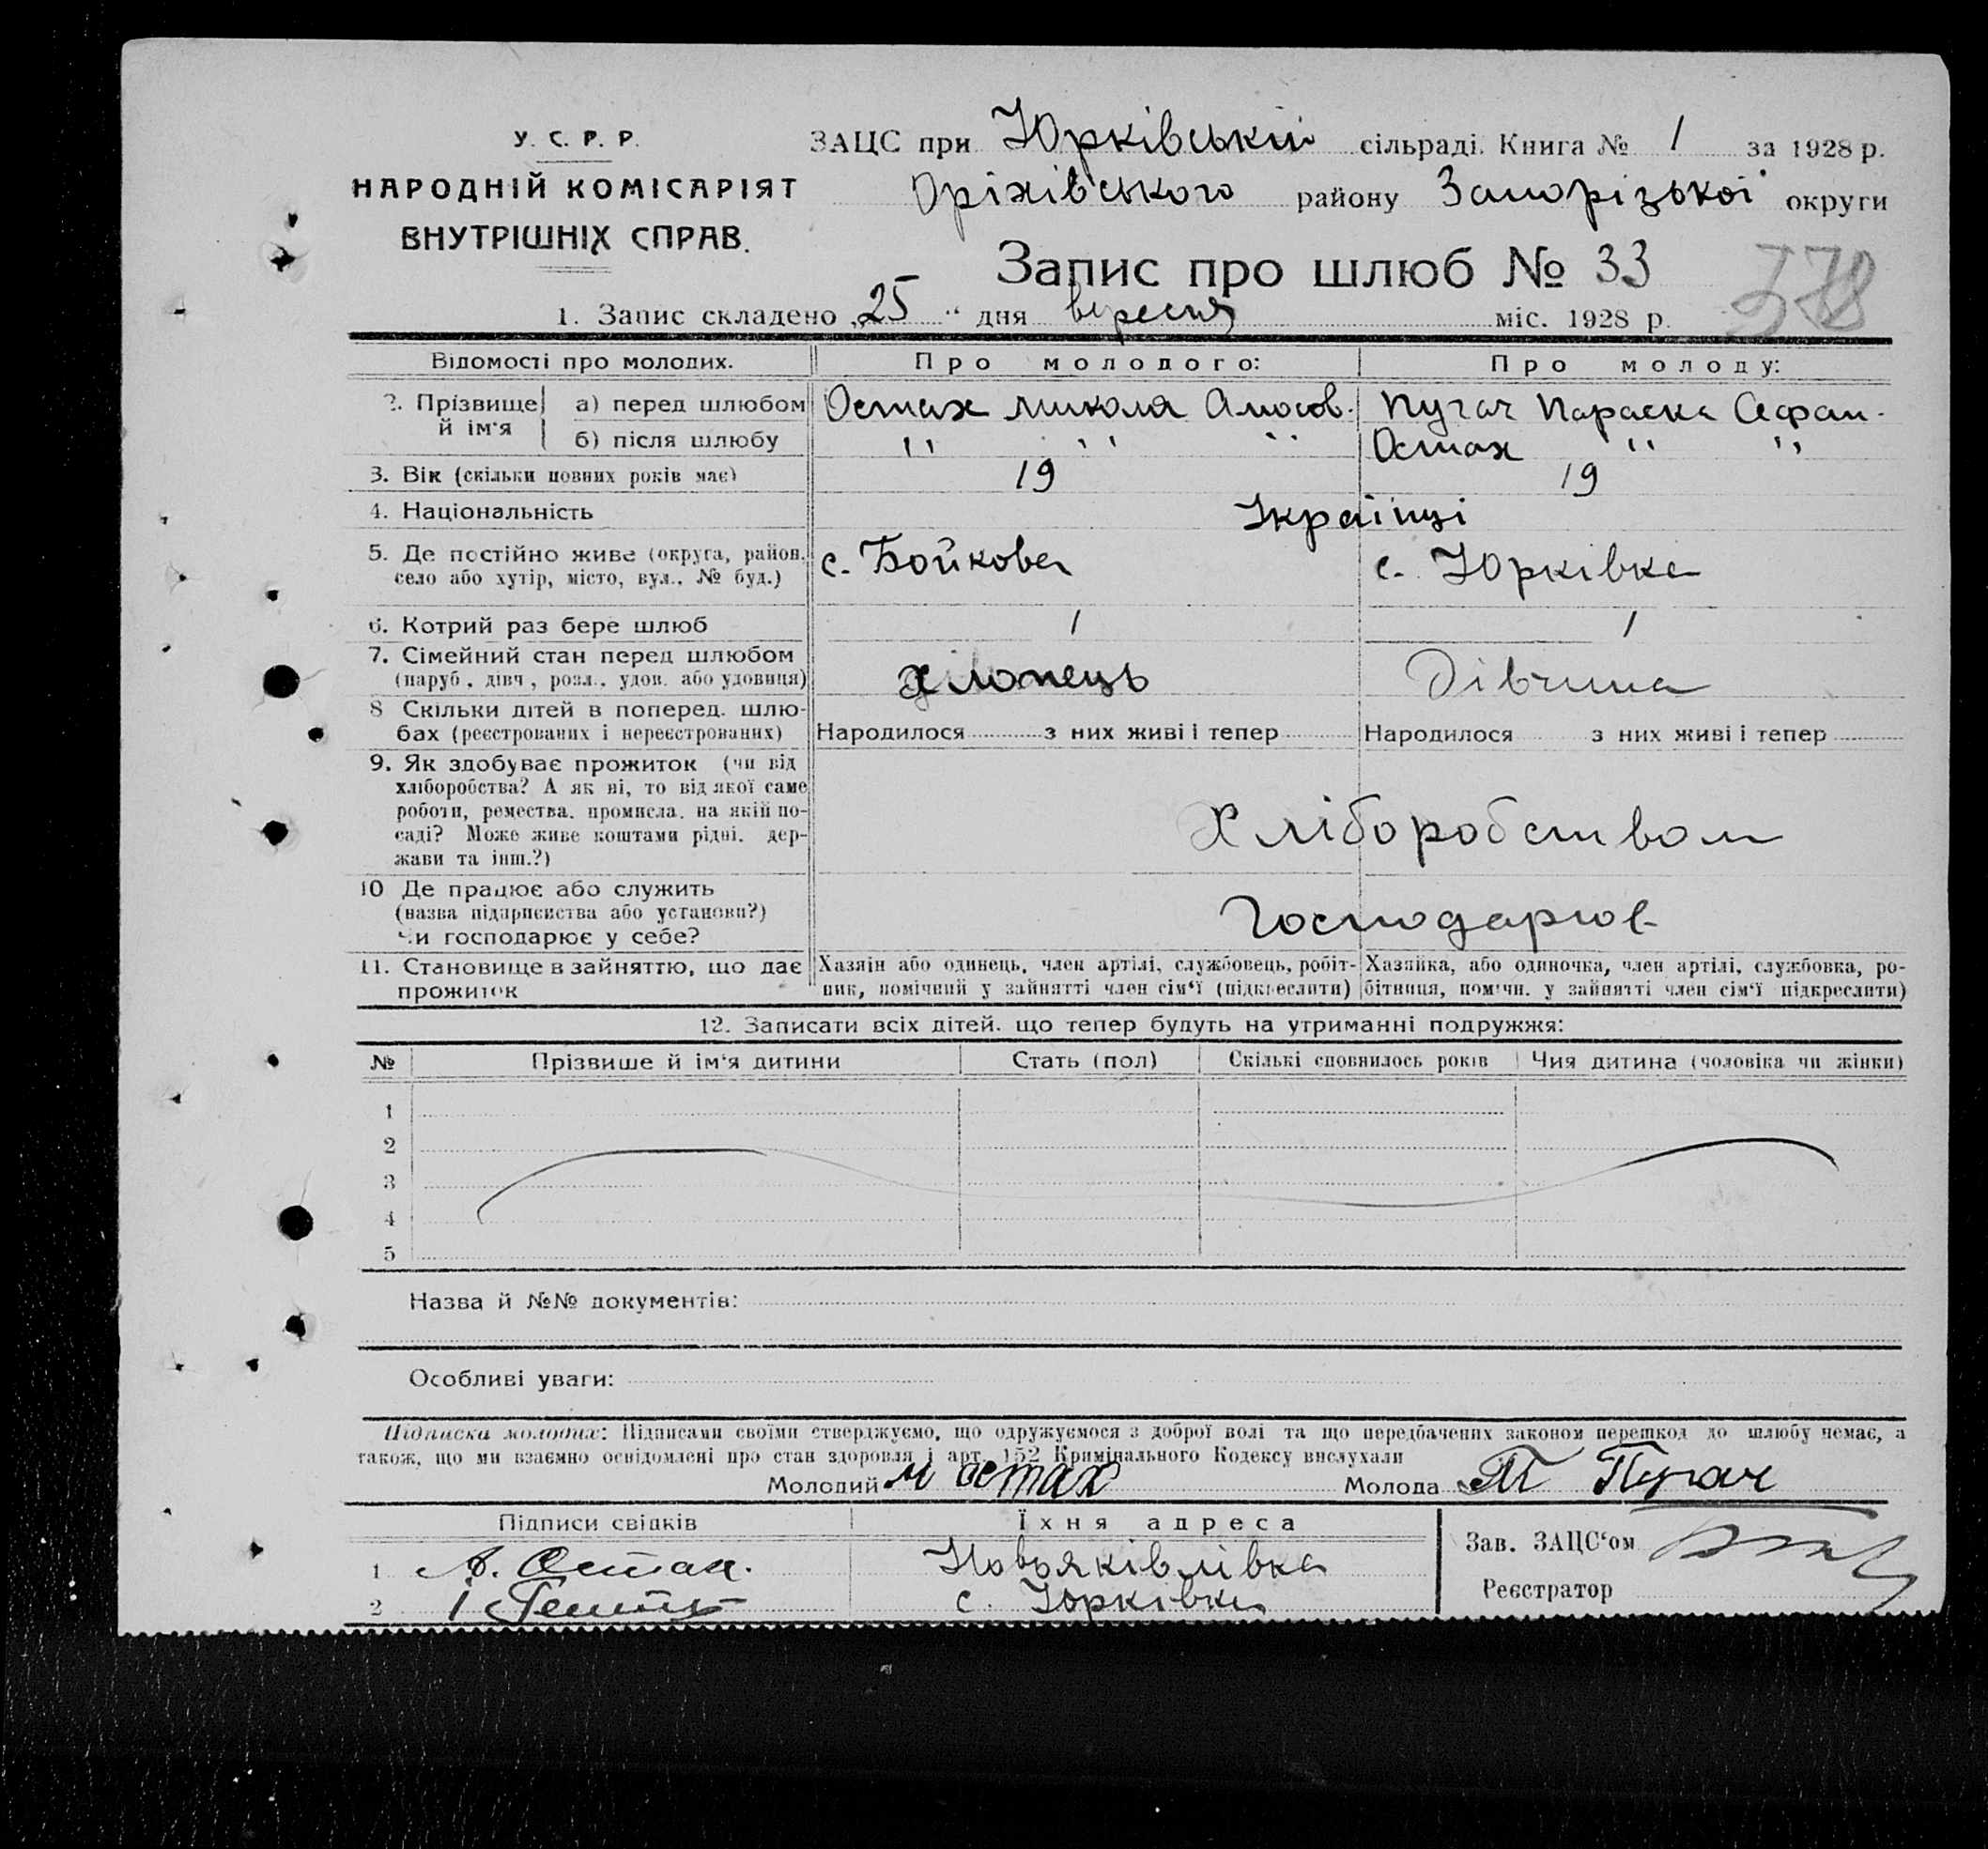 У. С. Р. Р.
НАРОДНІЙ КОМІСАРІЯТ
ВНУТРІШНІХ СПРАВ.
ЗАЦС при Юрківській сільраді. Книга № 1 за 1928 р.
Оріхівського району Запорізької округи
Запис про шлюб № 33
378
1. Запис складено „25“ дня вересня міс. 1928 р.
Відомості про молодих. Про молодого: Про молоду:
2. Прізвище й ім'я а) перед шлюбом Остах Микола Амосов. Пугач Параска
б) після шлюбу " " " Остах " "
3. Вік (скільки повних років має) 19 19
4. Національність Українці
5. Де постійно живе (округа, район, село або хутір, місто, вул., № буд.) с. Бойкова с. Юрківка
6. Котрий раз бере шлюб 1 1
7. Сімейний стан перед шлюбом (паруб., дівч., розл., удов. або удовиця) хлопець Дівчина
8 Скільки дітей в поперед. шлюбах (реєстрованих і нереєстрованих) Народилося з них живі і тепер Народилося з них живі і тепер
9. Як здобуває прожиток (чи від
хліборобства? А як ні, то від якої саме
роботи, ремества, промисла, на якій по-
саді? Може живе коштами рідні, дер-
жави та інш.?) Хліборобством
10 Де працює або служить
(назва підприємства або установи?)
Чи господарює у себе? Господарює
11. Становище в зайняттю, що дає прожиток
Хазяїн або одинець, член артілі, службовець, робіт-
ник, помічний у зайнятті член сім'ї (підкреслити)
Хазяйка, або одиночка, член артілі, службовка, ро-
бітниця, помічн. у зайнятті член сім'ї підкреслити)
12. Записати всіх дітей, що тепер будуть на утриманні подружжя:
№ Прізвище й ім'я дитини Стать (пол) Скількі сповнилось років Чия дитина (чоловіка чи жінки)
1
2
3
4
5
Назва й №№ документів:
Особливі уваги:
Підписка молодих: Підписами своїми стверджуємо, що одружуємося з доброї волі та що передбачених законом перешкод до шлюбу немає, а
також, що ми взаємно освідомлені про стан здоровля і арт. 152 Кримінального Кодексу вислухали
Молодий М Остах Молода П Пугач
Підписи свідків Їхня адреса
1 А. Остах. Новояківлівка
2 с. Юрківка
Зав. ЗАЦС'ом
Реєстратор